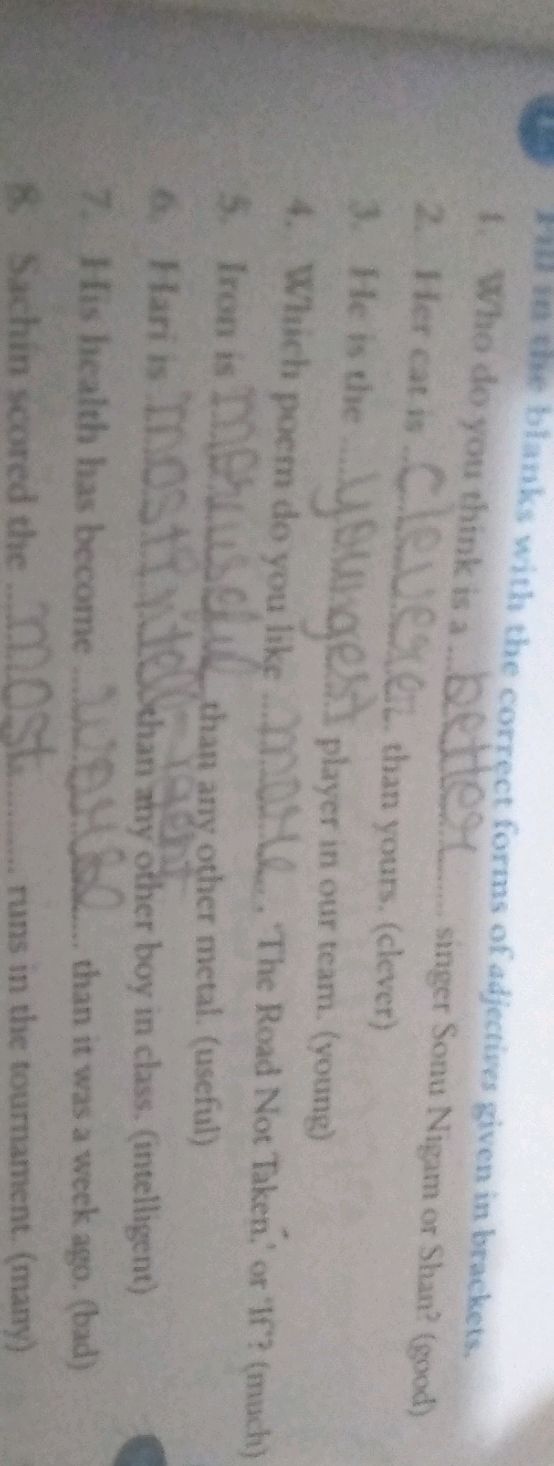 Fill in the blanks with the correct forms of adjectives given in brackets.
1. Who do you think is a better singer Sonu Nigam or Shan? (good)
2. Her cat is cleverer than yours. (clever)
3. He is the youngest player in our team. (young)
4. Which poem do you like more, 'The Road Not Taken,' or 'If'? (much)
5. Iron is more useful than any other metal. (useful)
6. Hari is most than any other boy in class. (intelligent)
7. His health has become than it was a week ago. (bad)
8. Sachin scored the most runs in the tournament. (many)